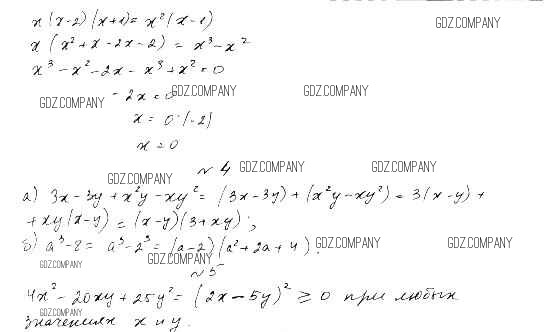 x(x-2)(x+1) = x²(x-1)
GDZ.COMPANY
x(x²+x-2x-2) = x³-x²
x³-x²-2x-x³+x²=0
-2x=0
GDZ.COMPANY GDZ.COMPANY GDZ.COMPANY
x= 0:(-2)
x=0
№4
GDZ.COMPANY GDZ.COMPANY GDZ.COMPANY
а) 3x-3y+x²y-xy²= (3x-3y)+(x²y-xy²)= 3(x-y)+
+xy(x-y)= (x-y)(3+xy);
б) a³-8= a³-2³=(a-2)(a²+2a+4).
GDZ.COMPANY GDZ.COMPANY GDZ.COMPANY GDZ.COMPANY
№5
4x²-20xy+25y²=(2x-5y)² ≥ 0 при любых
GDZ.COMPANY
значениях x и y.